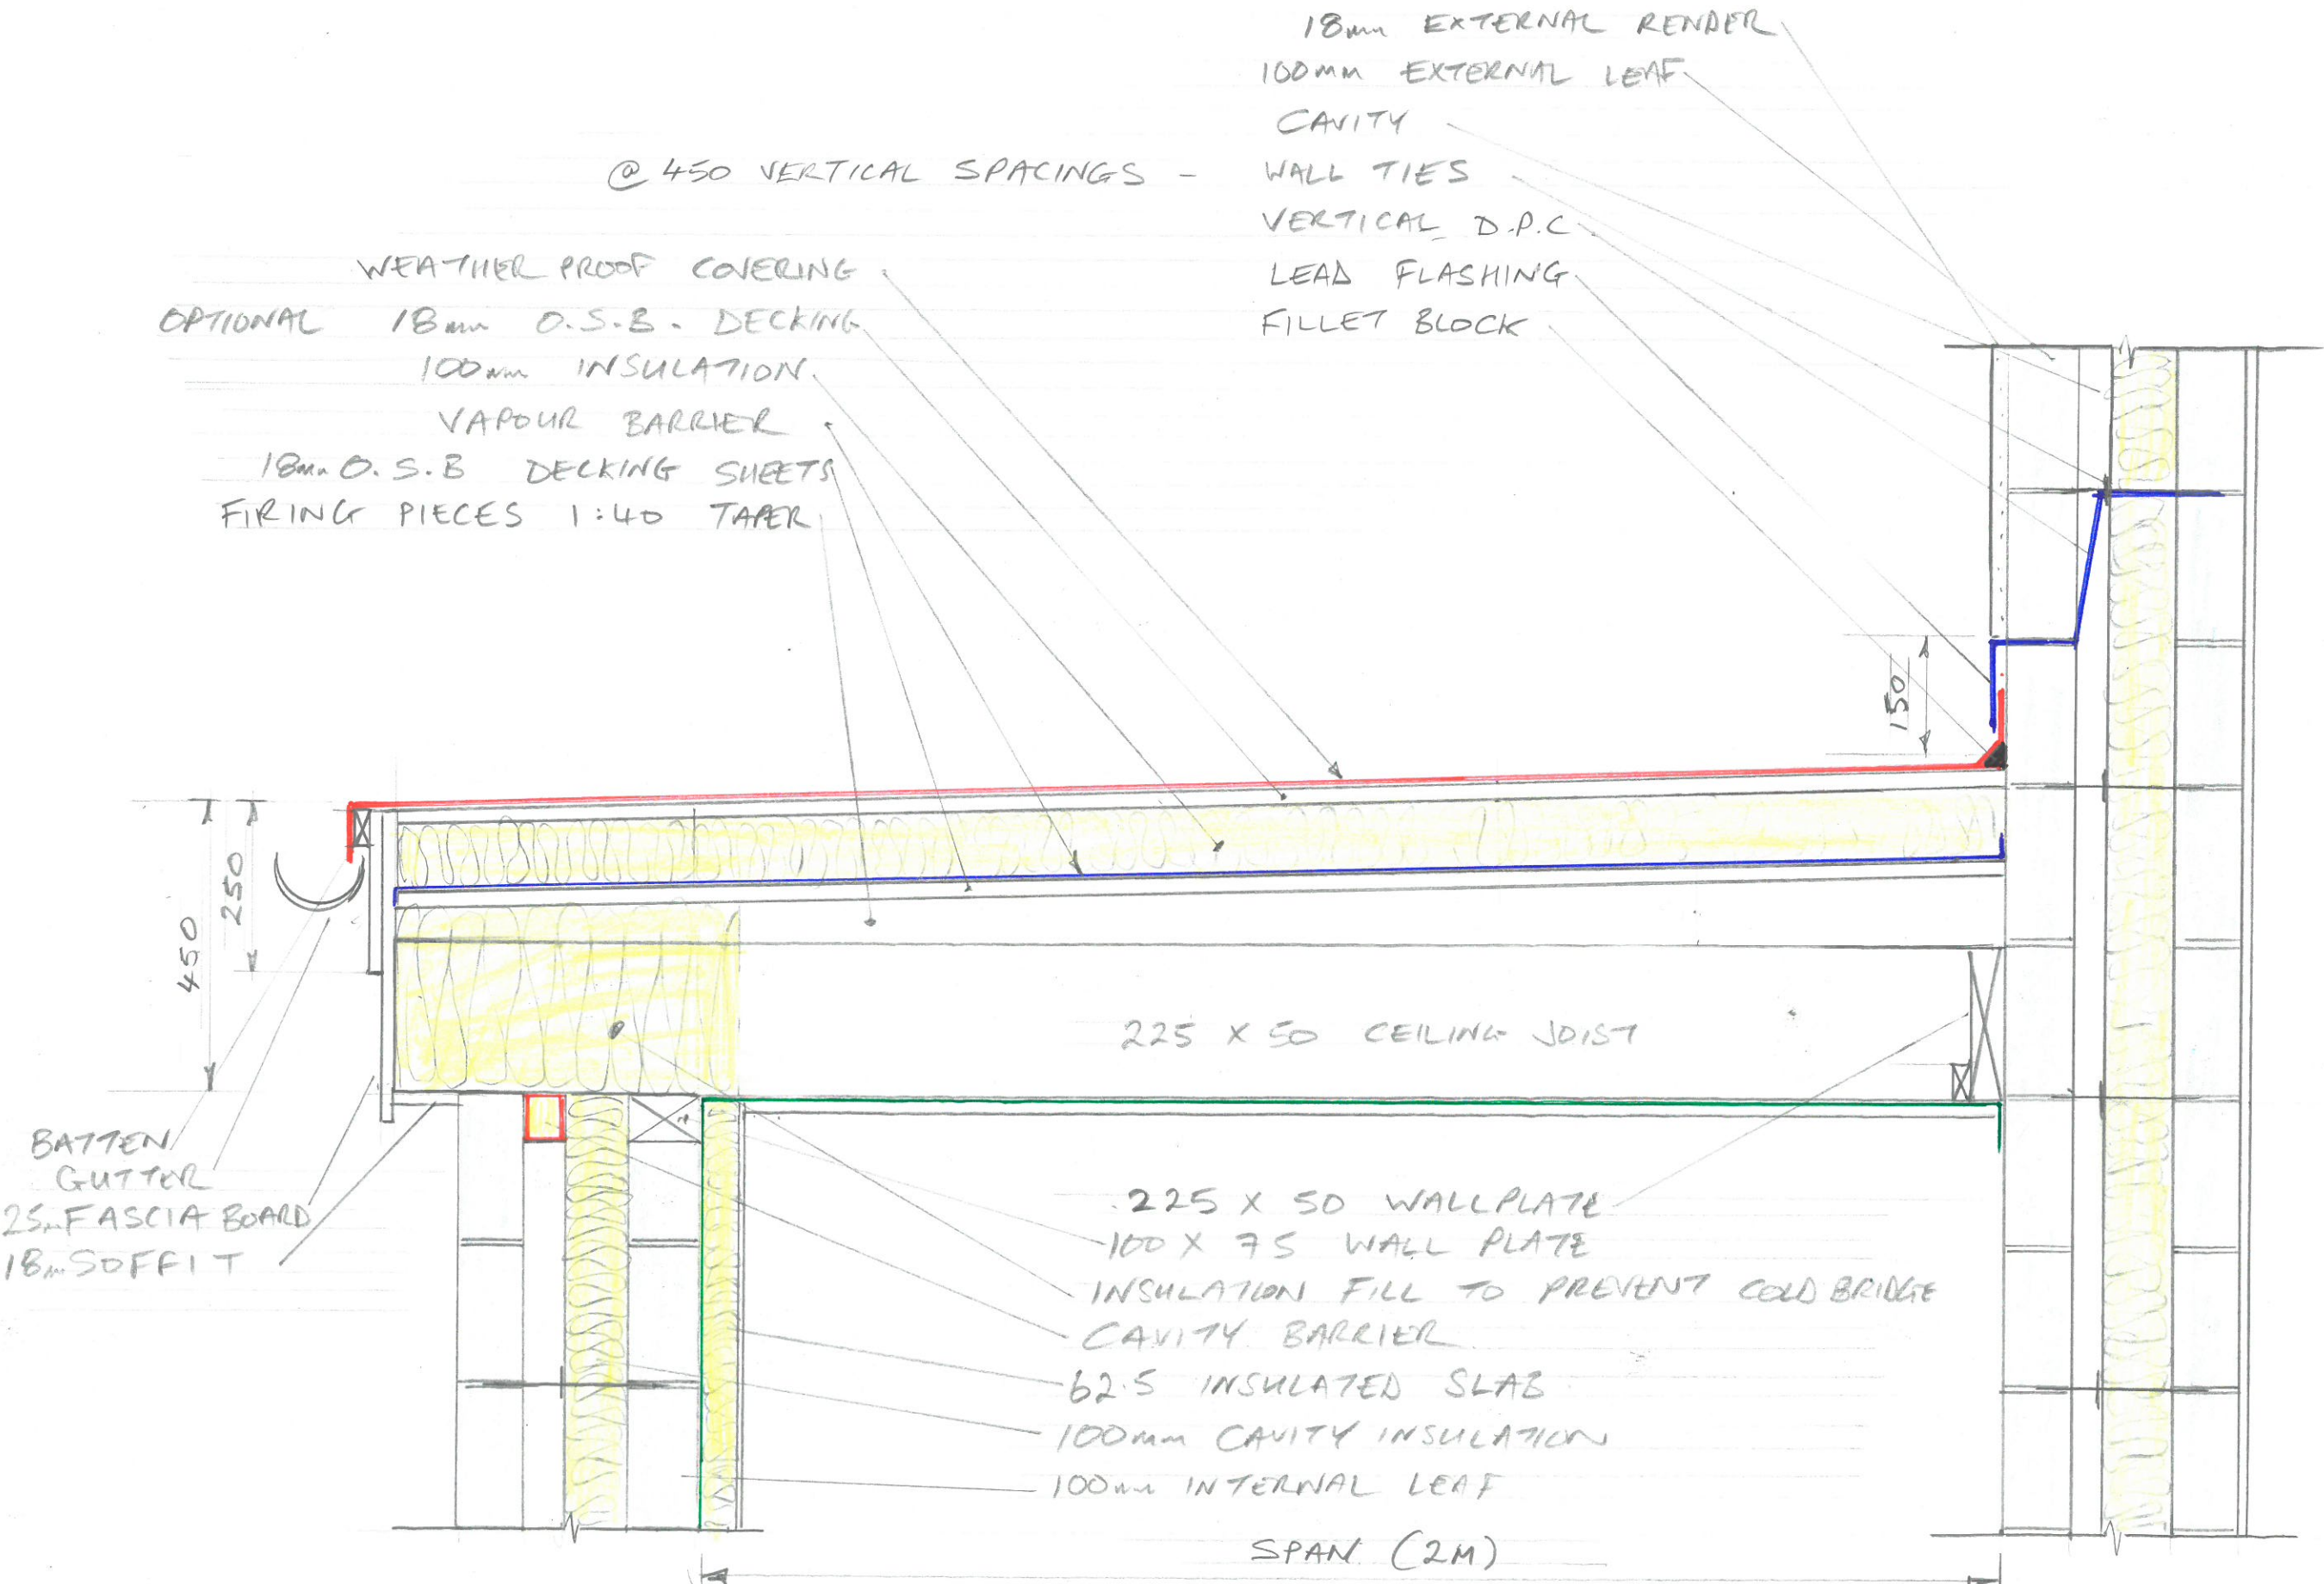 18mm EXTERNAL RENDER
100mm EXTERNAL LEAF
CAVITY
@ 450 VERTICAL SPACINGS - WALL TIES
VERTICAL D.P.C
LEAD FLASHING
FILLET BLOCK
WEATHER PROOF COVERING
OPTIONAL 18mm O.S.B. DECKING
100mm INSULATION
VAPOUR BARRIER
18mm O.S.B DECKING SHEETS
FIRING PIECES 1:40 TAPER
150
250
450
225 X 50 CEILING JOIST
BATTEN
GUTTER
25m FASCIA BOARD
18m SOFFIT
225 X 50 WALLPLATE
100 X 75 WALL PLATE
INSULATION FILL TO PREVENT COLD BRIDGE
CAVITY BARRIER
62.5 INSULATED SLAB
100mm CAVITY INSULATION
100mm INTERNAL LEAF
SPAN (2M)